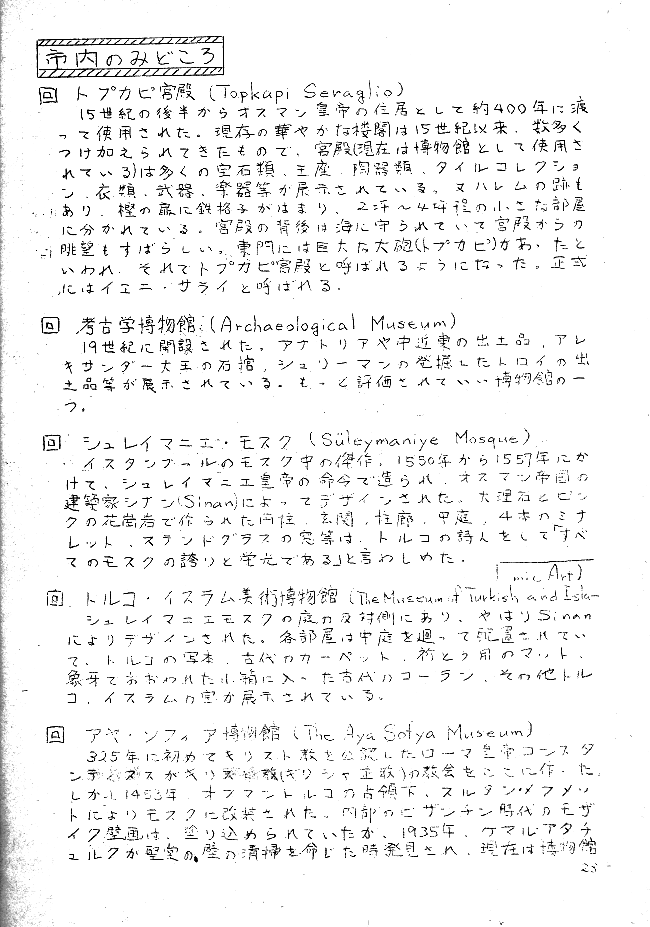 市内のみどころ
回 トプカピ宮殿 (Topkapi Seraglio)
15世紀の後半からオスマン皇帝の住居として約400年に渡
って使用された。現存の華やかな楼閣は15世紀以来、数多く
つけ加えられてきたもので、宮殿(現在は博物館として使用さ
れている)は多くの宝石類、王座、陶器類、タイルコレクショ
ン、衣類、武器、楽器等が展示されている。又ハレムの跡も
あり、樫の扉に鉄格子がはまり、2坪〜4坪程の小さな部屋
に分かれている。宮殿の背後は海に守られていて宮殿からの
眺望もすばらしい。東門には巨大な大砲(トプカピ)があったと
いわれ、それでトプカピ宮殿と呼ばれるようになった。正式
にはイエニ・サライと呼ばれる。
回 考古学博物館 (Archaeological Museum)
19世紀に開設された。アナトリアや中近東の出土品、アレ
キサンダー大王の石棺、シュリーマンの発掘したトロイの出
土品等が展示されている。もっと評価されていい博物館の一
つ。
回 シュレイマニエ・モスク (Süleymaniye Mosque)
イスタンブールのモスク中の傑作。1550年から1557年にか
けて、シュレイマニエ皇帝の命令で造られ、オスマン帝国の
建築家シナン(Sinan)によってデザインされた。大理石とピン
クの花崗岩で作られた円柱、玄関、柱廊、中庭、4本のミナ
レット、ステンドグラスの窓等は、トルコの詩人をして「すべ
てのモスクの誇りと栄光である」と言わしめた。
回 トルコ・イスラム美術博物館 (The Museum of Turkish and Isla-
mic Art)
シュレイマニエモスクの庭の反対側にあり、やはりSinan
によりデザインされた。各部屋は中庭を廻って配置されてい
て、トルコの写本、古代のカーペット、祈とう用のマット、
象牙でおおわれた小箱に入った古代のコーラン、その他トル
コ、イスラムの宝が展示されている。
回 アヤ・ソフィア博物館 (The Aya Sofya Museum)
325年に初めてキリスト教を公認したローマ皇帝コンスタ
ンティヌスがギリシャ正教(ギリシャ正教)の教会をここに作った。
しかし1453年、オスマントルコの占領下、スルタンメフメッ
トによりモスクに改装された。内部のビザンチン時代のモザ
イク壁画は、塗り込められていたが、1935年、ケマルアタチ
ュルクが聖堂の壁の清掃を命じた時発見され、現在は博物館
25